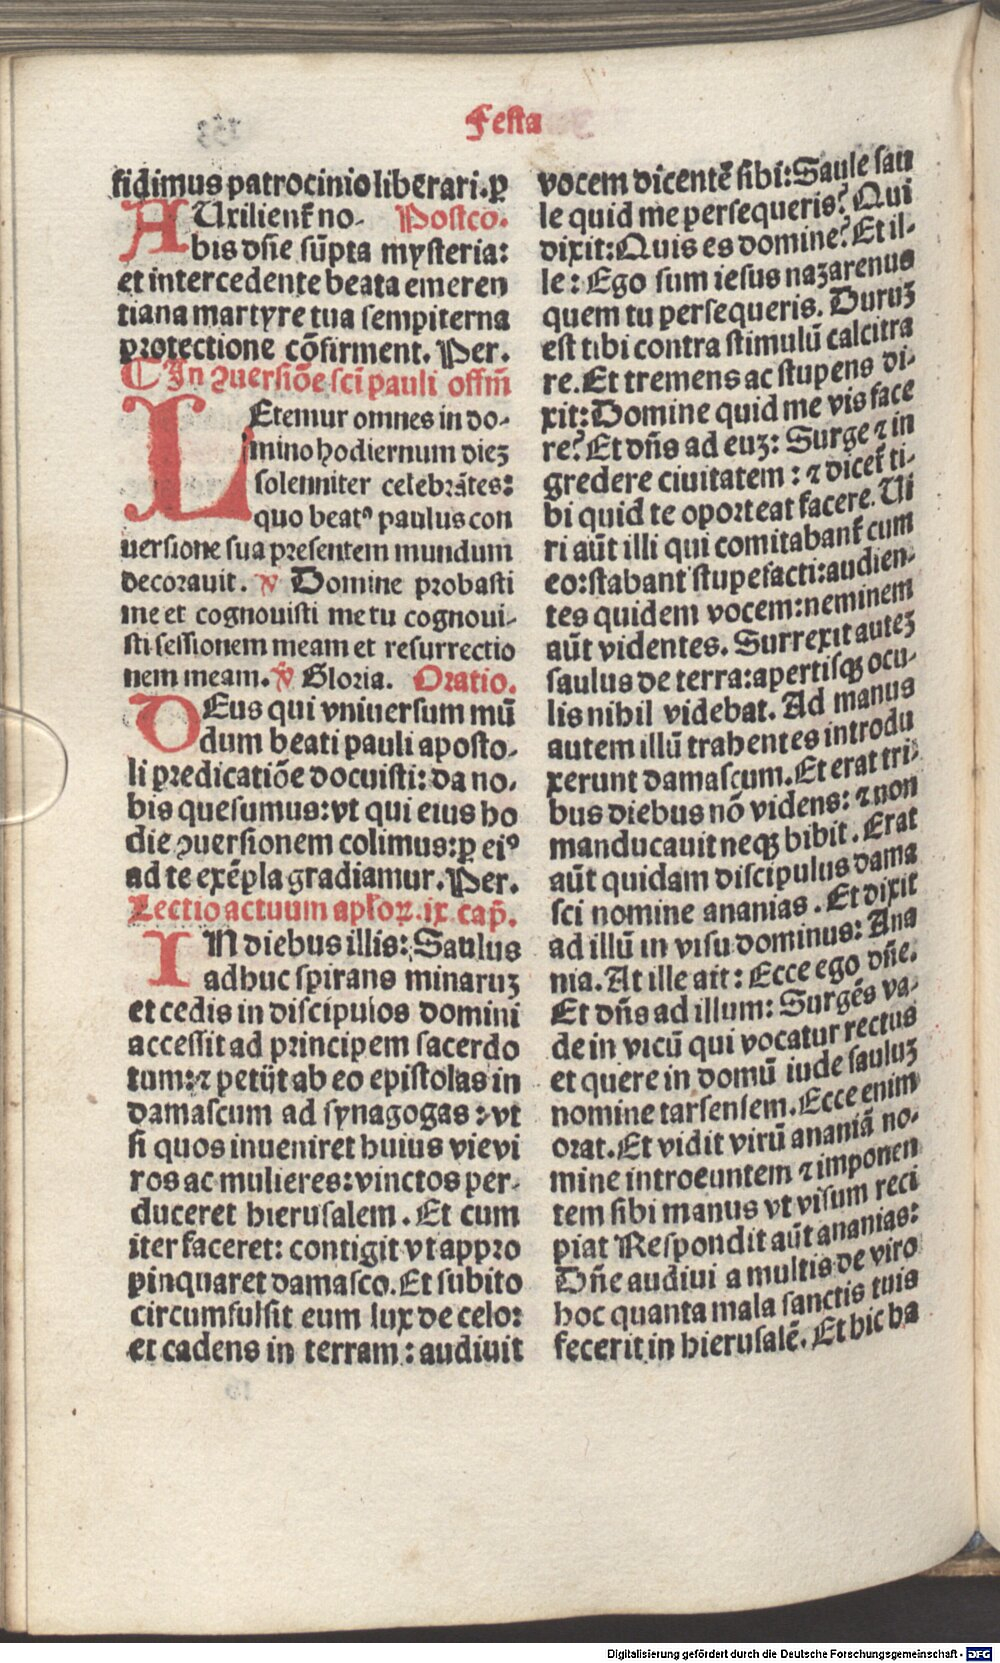 Festa
fidimus patrocinio liberari. ꝑ
AUxilient᷑ no- Postco.
bis dn̄e sūpta mysteria:
et intercedente beata emeren
tiana martyre tua sempiterna
protectione cōfirment. Per.
¶ In ꝯuersiōe sc̄i pauli offm̄
LEtemur omnes in do-
mino hodiernum dieꝫ
solenniter celebrātes:
quo beatꝰ paulus con
uersione sua presentem mundum
decorauit. ℣ Domine probasti
me et cognouisti me tu cognoui-
sti sessionem meam et resurrectio
nem meam. ℣ Gloria. Oratio.
DEus qui vniuersum mū
dum beati pauli aposto-
li predicatiōe docuisti: da no-
bis quesumus: vt qui eius ho
die ꝯuersionem colimus: ꝑ eiꝰ
ad te exēpla gradiamur. Per.
Lectio actuum apl'oꝝ. ix. cap̄.
IN diebus illis: Saulus
adhuc spirans minaruꝫ
et cedis in discipulos domini
accessit ad principem sacerdo
tum: ⁊ petijt ab eo epistolas in
damascum ad synagogas: vt
si quos inueniret huius vie vi
ros ac mulieres: vinctos per-
duceret hierusalem. Et cum
iter faceret: contigit vt appro
pinquaret damasco. Et subito
circumfulsit eum lux de celo:
et cadens in terram: audiuit
vocem dicentē sibi: Saule sau
le quid me persequeris? Qui
dixit: Quis es domine? Et il-
le: Ego sum iesus nazarenus
quem tu persequeris. Duruꝫ
est tibi contra stimulū calcitra
re. Et tremens ac stupens di-
xit: Domine quid me vis face
re? Et dn̄s ad euꝫ: Surge ⁊ in
gredere ciuitatem: ⁊ dicet᷑ ti-
bi quid te oporteat facere. Ui
ri aūt illi qui comitabant᷑ cum
eo: stabant stupefacti: audien-
tes quidem vocem: neminem
aūt videntes. Surrexit auteꝫ
saulus de terra: apertisqꝫ ocu-
lis nihil videbat. Ad manus
autem illū trahentes introdu
xerunt damascum. Et erat tri-
bus diebus nō videns: ⁊ non
manducauit neqꝫ bibit. Erat
aūt quidam discipulus dama
sci nomine ananias. Et dixit
ad illū in visu dominus: Ana
nia. At ille ait: Ecce ego dn̄e.
Et dn̄s ad illum: Surgēs va-
de in vicū qui vocatur rectus
et quere in domū iude sauluꝫ
nomine tarsensem. Ecce enim
orat. Et vidit virū ananiā no-
mine introeuntem ⁊ imponen
tem sibi manus vt visum reci
piat Respondit aūt ananias:
Dn̄e audiui a multis de viro
hoc quanta mala sanctis tuis
fecerit in hierusalē. Et hic ha
Digitalisierung gefördert durch die Deutsche Forschungsgemeinschaft - DFG